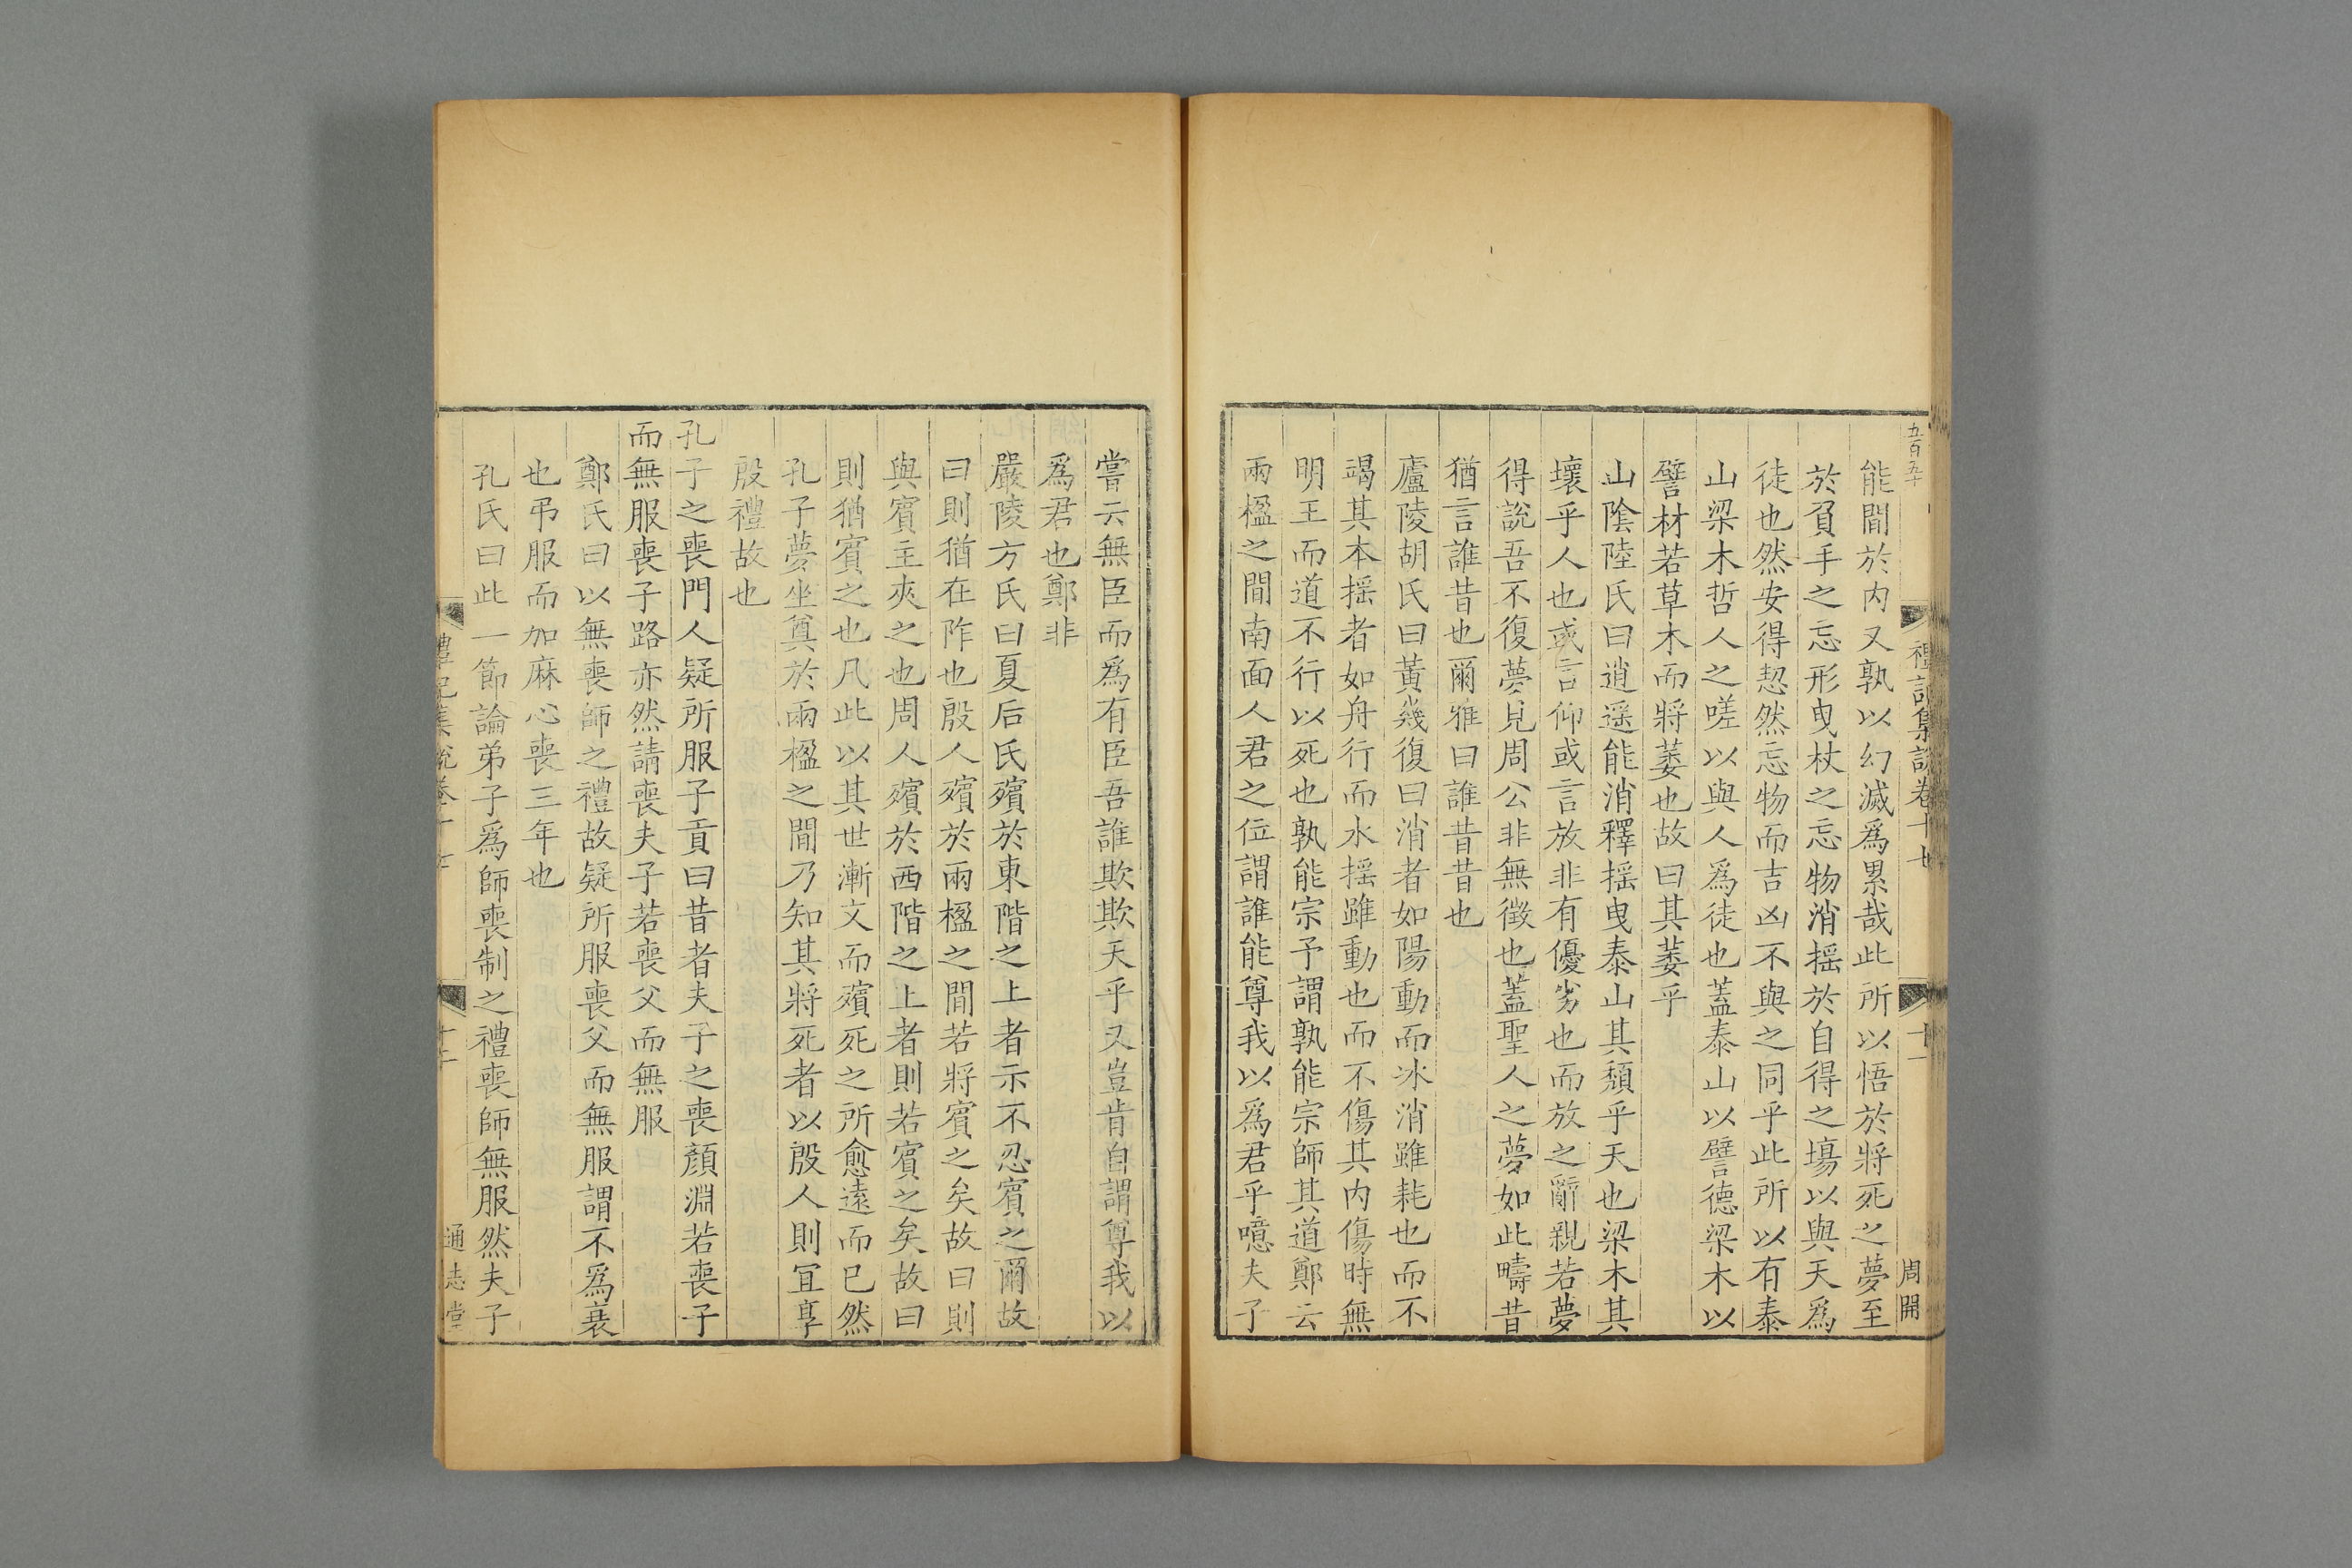 五百五十
禮記集說卷十七
十一
周開
能間於内又孰以幻滅爲累哉此所以悟於將死之夢至
於負手之忘形曳杖之忘物消揺於自得之場以與天爲
徒也然安得恝然忘物而吉凶不與之同乎此所以有泰
山梁木哲人之嗟以與人爲徒也蓋泰山以譬德梁木以
譬材若草木而將萎也故曰其萎乎
山陰陸氏曰逍遥能消釋揺曳泰山其頽乎天也梁木其
壞乎人也或言仰或言放非有優劣也而放之辭親若夢
得說吾不復夢見周公非無徴也蓋聖人之夢如此疇昔
猶言誰昔也爾雅曰誰昔昔也
廬陵胡氏曰黃幾復曰消者如陽動而冰消雖耗也而不
竭其本揺者如舟行而水揺雖動也而不傷其内傷時無
明王而道不行以死也孰能宗予謂孰能宗師其道鄭云
兩楹之間南面人君之位謂誰能尊我以爲君乎噫夫子
嘗云無臣而爲有臣吾誰欺欺天乎又豈肯自謂尊我以
爲君也鄭非
嚴陵方氏曰夏后氏殯於東階之上者示不忍賓之爾故
曰則猶在阼也殷人殯於兩楹之間若將賓之矣故曰則
與賓主夾之也周人殯於西階之上者則若賓之矣故曰
則猶賓之也凡此以其世漸文而殯死之所愈遠而已然
孔子夢坐奠於兩楹之間乃知其將死者以殷人則宜享
殷禮故也
孔子之喪門人疑所服子貢曰昔者夫子之喪顏淵若喪子
而無服喪子路亦然請喪夫子若喪父而無服
鄭氏曰以無喪師之禮故疑所服喪父而無服謂不爲衰
也弔服而加麻心喪三年也
孔氏曰此一節論弟子爲師喪制之禮喪師無服然夫子
禮記集說卷十七
十二
通志堂